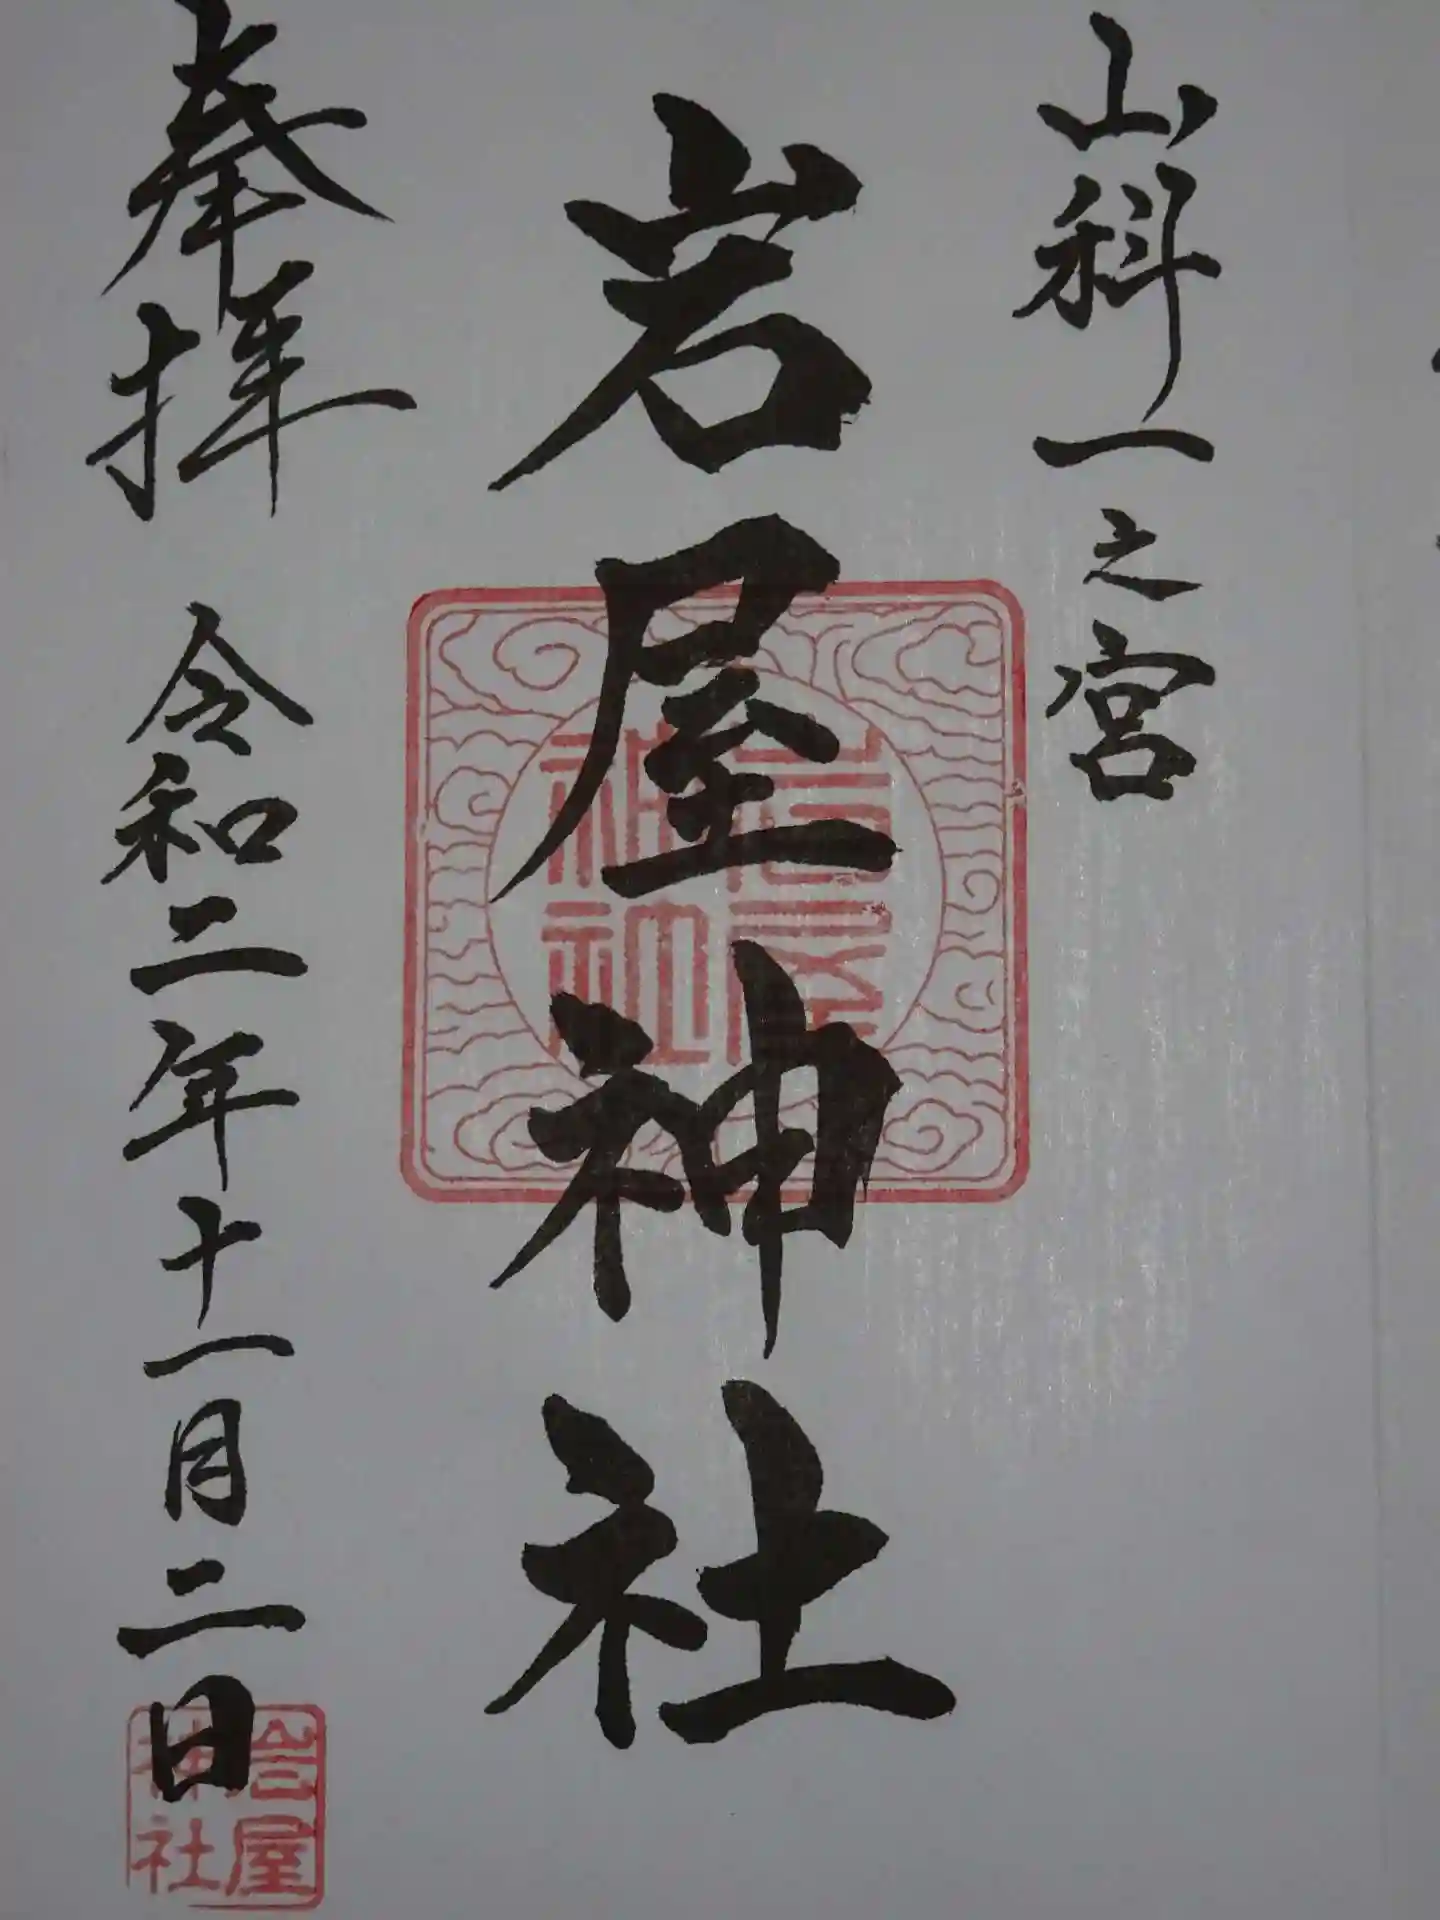 山科一之宮
岩屋神社
奉拝 令和二年十一月二日
岩屋
神社
岩屋
神社